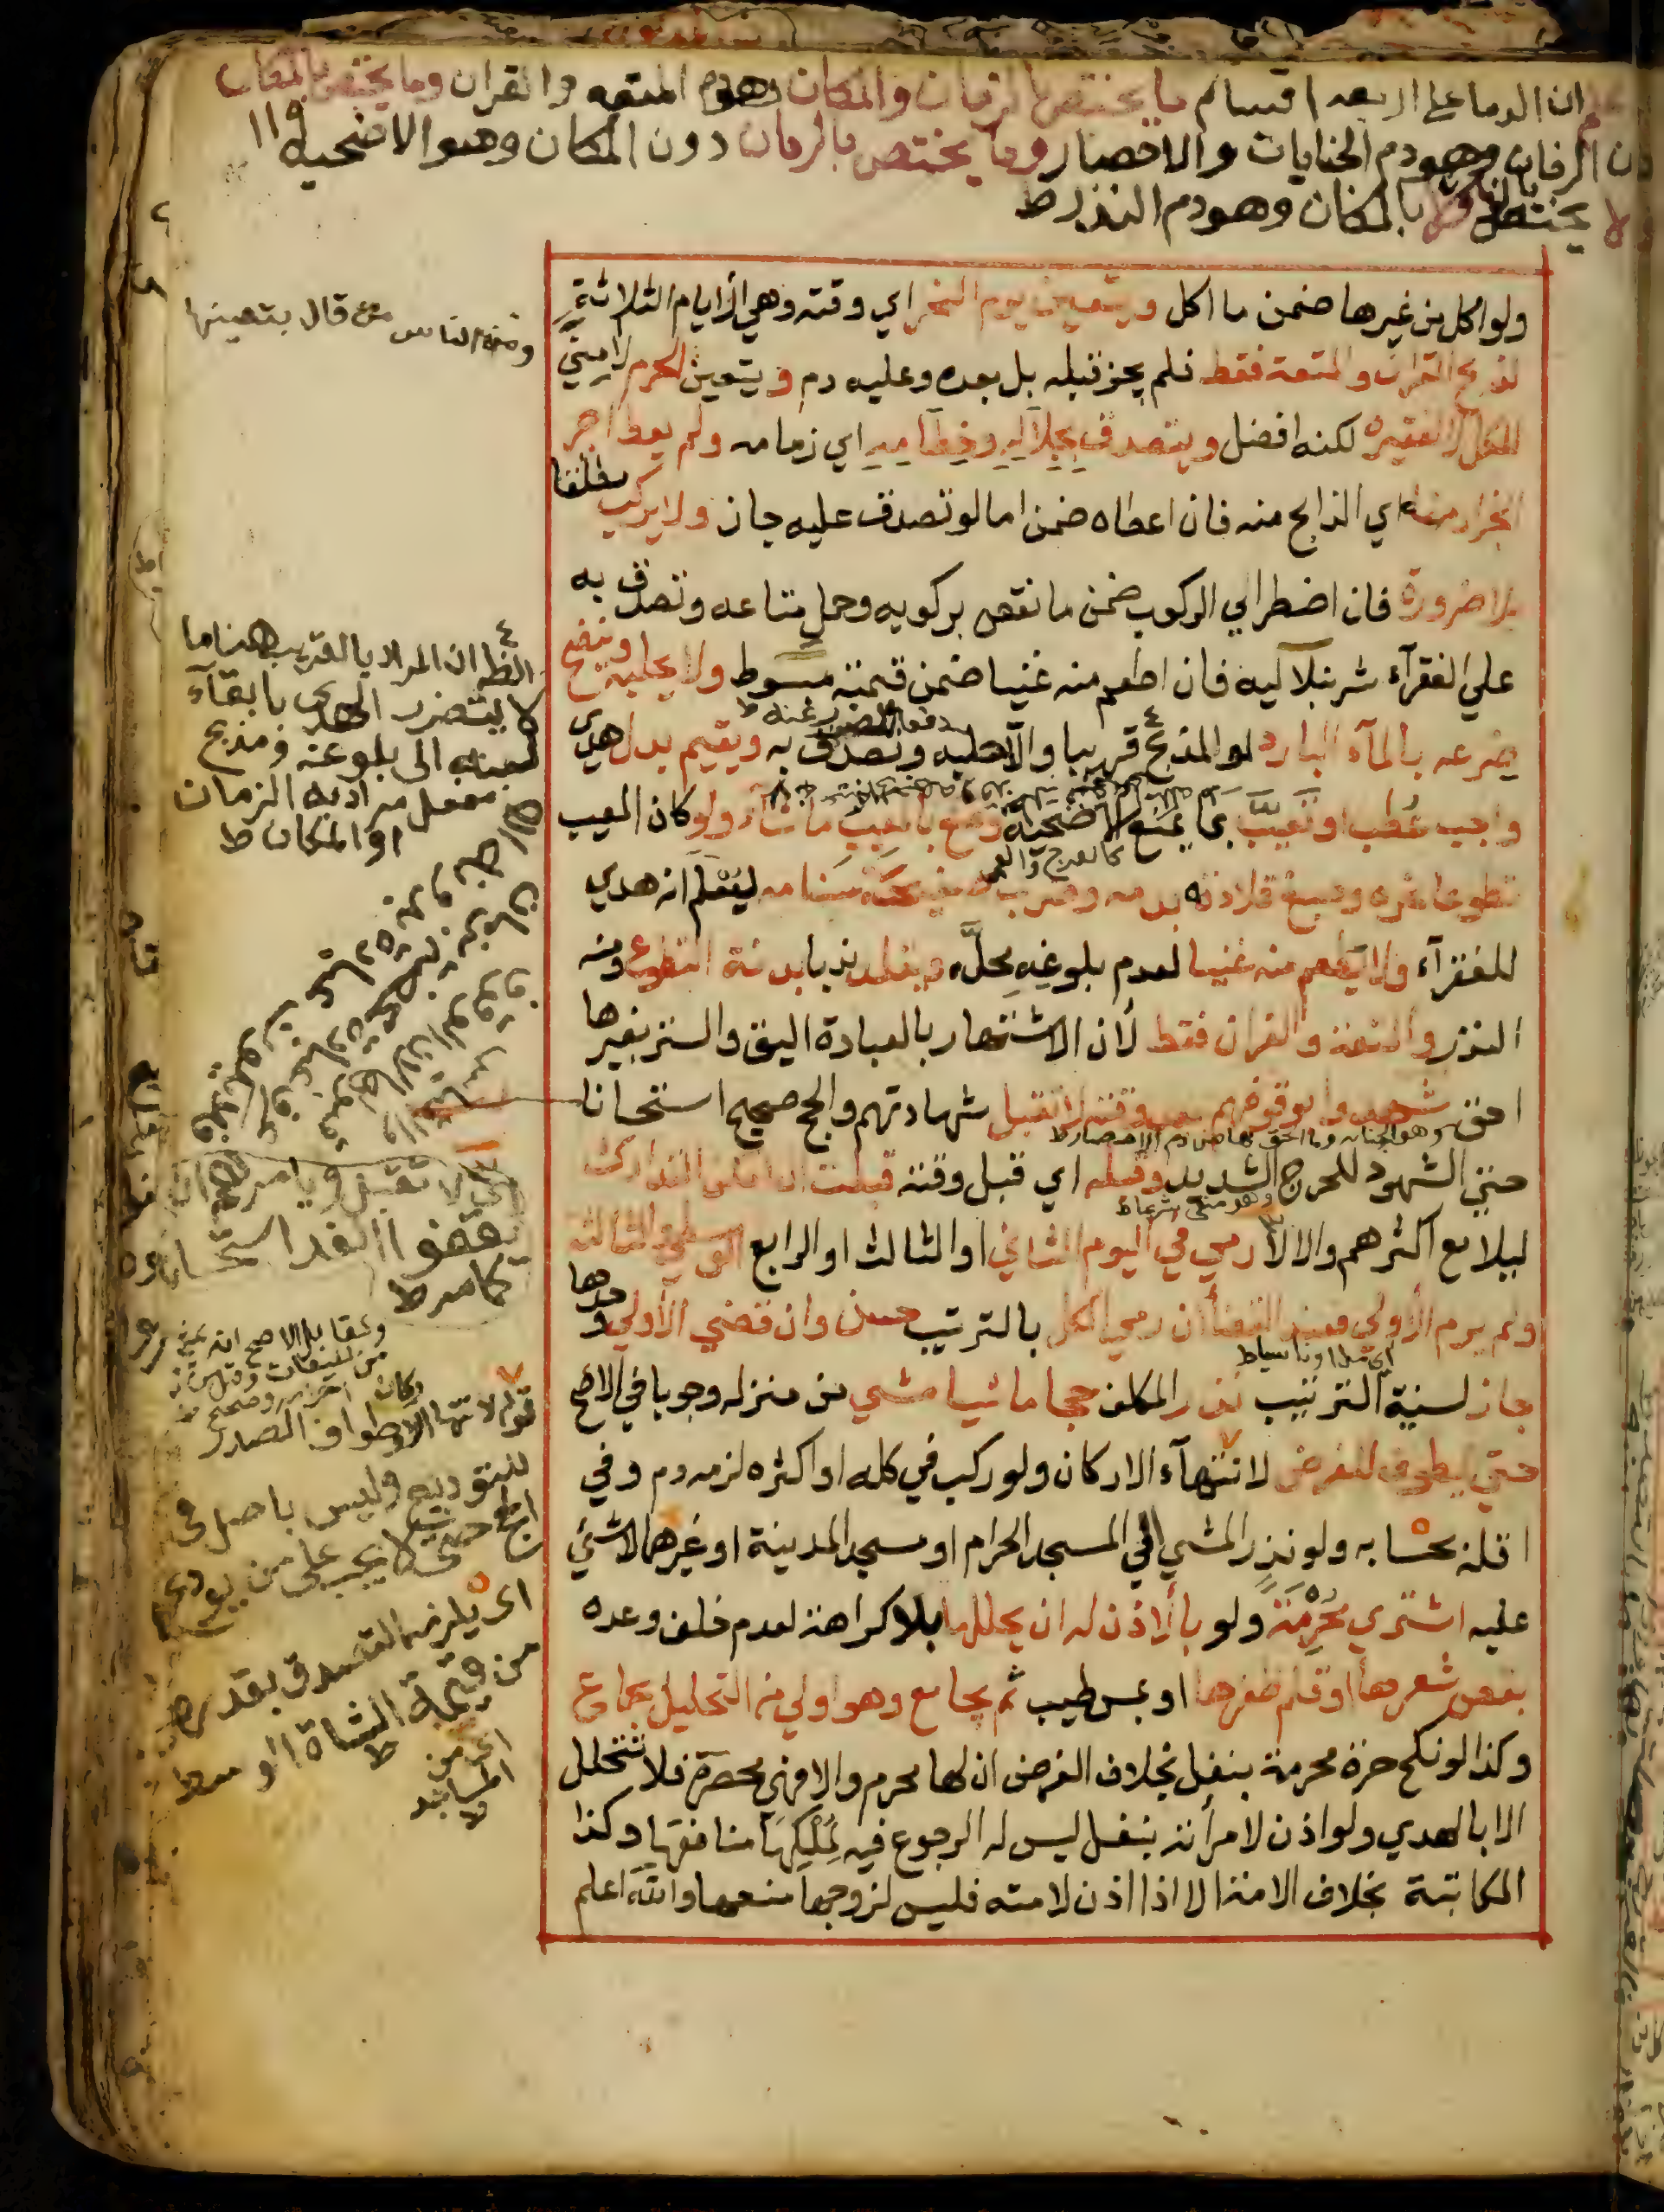 ان الدما على اربعة اقسام ما يختص بالزمان والمكان وهو دم المتعه والقران وما يختص بالمكان
دون الزمان وهو دم الجنايات والاحصار وما يختص بالزمان دون المكان وهو الاضحيه ١١٩
لا يختص بالزمان ولا بالمكان وهو دم النذر ط
ولو اكل من غيرها ضمن ما اكل ويتعين يوم النحر اي وقته وهي الأيام الثلاثة
لذبح القران والمتعة فقط فلم يجز قبله بل بعده وعليه دم ويتعين الحرم لا منى
للكل لا لفقيره لكنه افضل ويتصدق بجلاله وخطامه اي زمامه ولم يعط اجر
الجزار منه اي الذابح منه فان اعطاه ضمن اما لو تصدق عليه جاز ولا يركب مطلقا
بلا ضرورة فان اضطر الي الركوب ضمن ما نقص بركوبه وحمل متاعه وتصدق به
علي الفقرآء شرنبلاليه فان اطعم منه غنيا ضمن قيمته مبسوط ولا يحلبه وينضح
ضرعه بالمآء البارد لو المذبح قريبا والا حلبه وتصدق به ويقيم بدل هدي
واجب عطب او تعيب بما يمنع الاضحية وصنع بالمعيب ما شآء ولو كان المعيب
تطوعا نحره وصبغ قلادته بدمه وضرب به صفحة سنامه ليعلم انه هدي
للفقرآء ولا يطعم منه غنيا لعدم بلوغه محله ويقلد ندبا بدنة التطوع ومنه
النذر والمتعة والقران فقط لأن الاشتهار بالعبادة اليق والستر بغيرها
احق شهدوا بوقوفهم بعد وقته لا تقبل شهادتهم والحج صحيح استحسانا
حتي الشهود للحرج الشديد وقبله اي قبل وقته قبلت ان امكن التدارك
ليلا مع اكثرهم والا لا رمي في اليوم الثاني او الثالث او الرابع الوسطي والثالثة
ولم يرم الأولي فعند القضأ ان رمي الكل بالترتيب حسن وان قضي الأولي وحدها
جاز لسنية الترتيب نذر المكلف حجا ماشيا مشي من منزله وجوبا في الاصح
حتي يطوف الفرض لانتهآء الاركان ولو ركب في كله او اكثره لزمه دم وفي
اقله بحسابه ولو نذر المشي الي المسجد الحرام او مسجد المدينة او غيرهما لا شئ
عليه اشتري محرمة ولو بالاذن له ان يحللها بلا كراهة لعدم خلف وعده
بقص شعرها او قلم ظفرها او بمس طيب ثم يجامع وهو اولي من التحليل بجماع
وكذا لو نكح حرة محرمة بنفل بخلاف الفرض ان لها محرم والا فهي محصرة فلا تتحلل
الا بالهدي ولو اذن لامرأته بنفل ليس له الرجوع فيه لملكها منافعها وكذا
المكاتبة بخلاف الامة الا اذا اذن لامته فليس لزوجها منعها والله اعلم
ومن الناس من قال بتعينها
الظ ان المراد بالقريب هنا ما
لا يتضرر الهدي بابقآء
لبنه الى بلوغه ومذبح
مفعل مراد به الزمان
او المكان ط
وهو الجنايه وما الحق بها من دم الاحصار ط
وهو منفي شرعا ط
اي لا تقبل ويامرهم ان
يقفوا الغد استحسانا
كما مر ط
قوله لانتهآء الاركان وطواف الصدر
للتوديع وليس باصل في
الحج حتى لا يجب على من يودع
اي يلزمه التصدق بقدره
من قيمة الشاة الوسط
ط